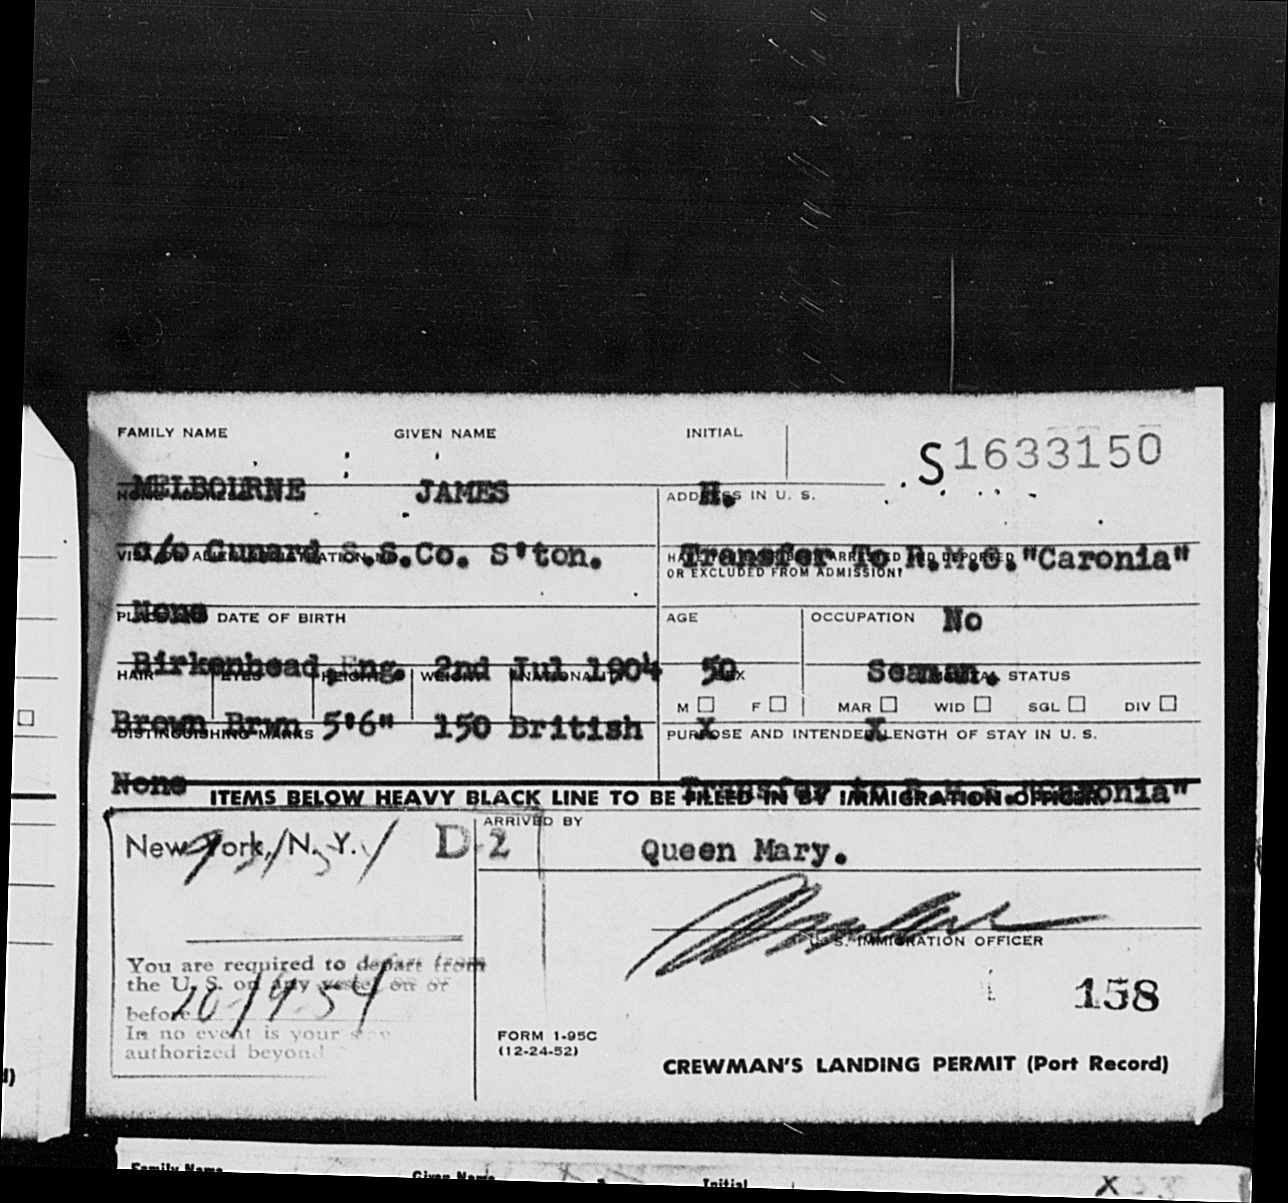 FAMILY NAME GIVEN NAME INITIAL
S1633150
MELBOURNE JAMES H.
ADDRESS IN U. S.
c/o Cunard S.S.Co. S'ton. Transfer To R.M.S."Caronia"
OR EXCLUDED FROM ADMISSION?
None No
DATE OF BIRTH AGE OCCUPATION
Birkenhead,Eng. 2nd Jul 1904 50 Seaman.
HAIR EYES HEIGHT WEIGHT NATIONALITY SEX MARITAL STATUS
M F MAR WID SGL DIV
Brown Brwn 5'6" 150 British X X
DISTINGUISHING MARKS PURPOSE AND INTENDED LENGTH OF STAY IN U. S.
None Transfer to R.M.S."Caronia"
ITEMS BELOW HEAVY BLACK LINE TO BE FILLED IN BY IMMIGRATION OFFICER
ARRIVED BY
New York, N. Y. D-2 Queen Mary.
U. S. IMMIGRATION OFFICER
You are required to depart from
the U. S. on any vessel on or
before
In no event is your stay
authorized beyond
158
FORM 1-95C
(12-24-52)
CREWMAN'S LANDING PERMIT (Port Record)
Family Name Given Name Initial
X